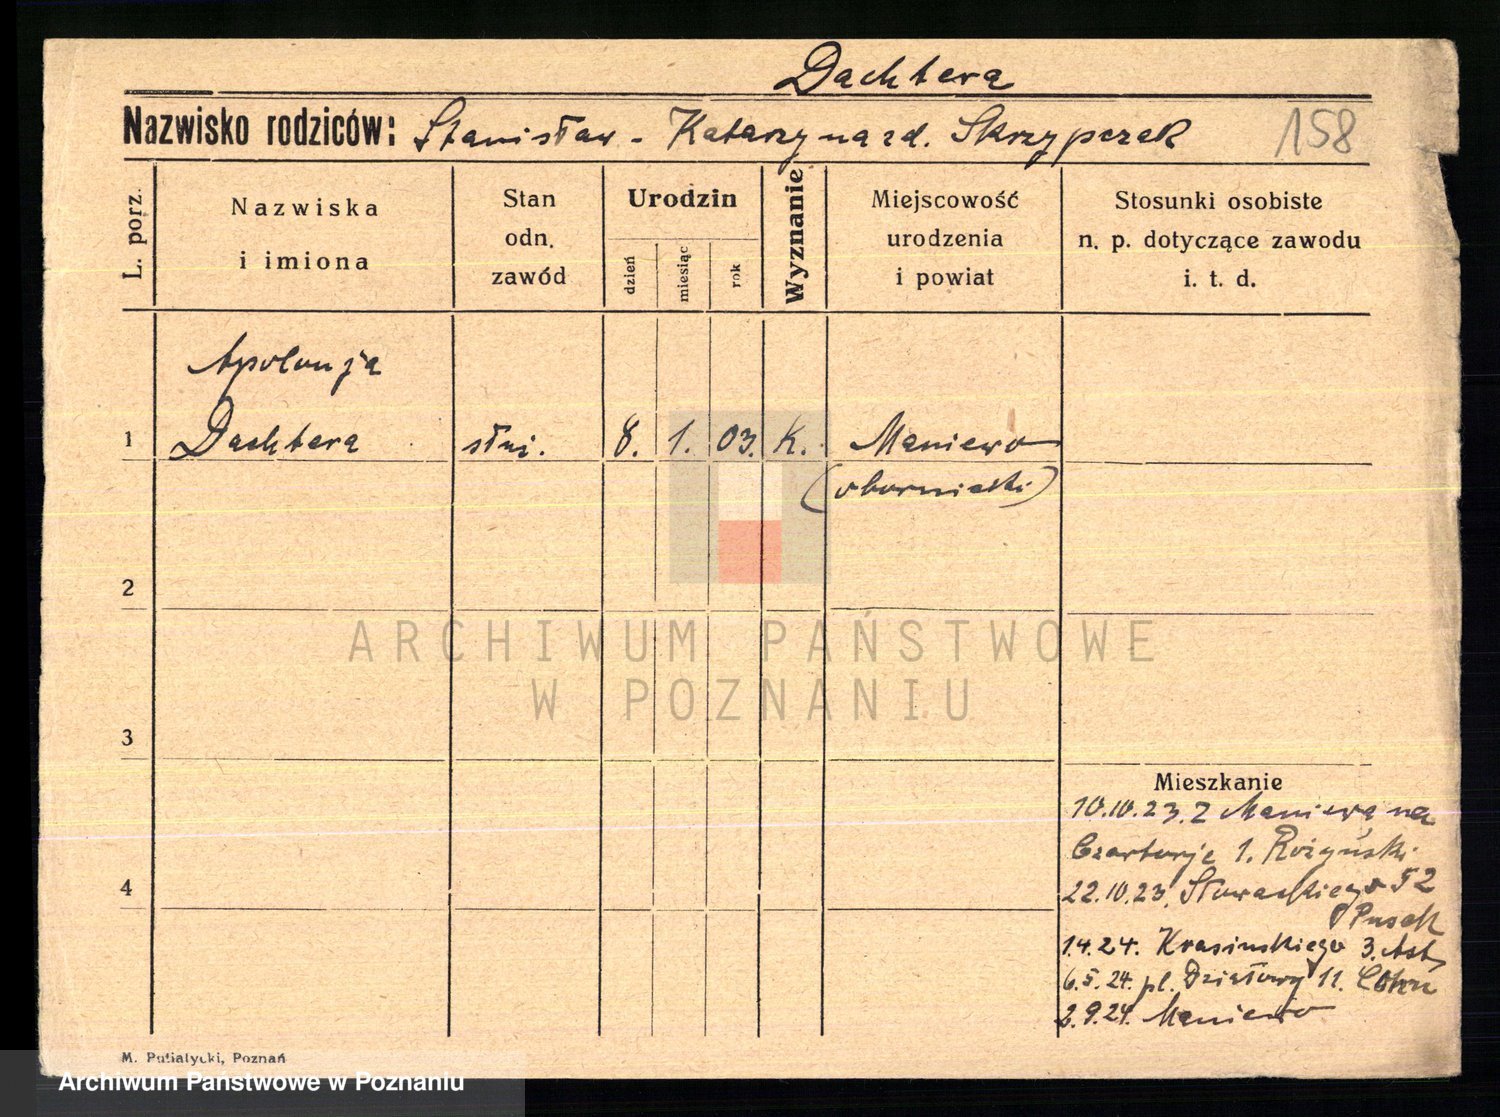 Dachtera
Nazwisko rodziców: Stanisław - Katarzyna zd. Skrzypczak 158
L. porz.
Nazwiska
i imiona
Stan
odn.
zawód
Urodzin
dzień
miesiąc
rok
Wyznanie
Miejscowość
urodzenia
i powiat
Stosunki osobiste
n. p. dotyczące zawodu
i. t. d.
Apolonja
1 Dachtera służ. 8. 1. 03. K. Maniewo
(obornicki)
2
ARCHIWUM PAŃSTWOWE
W POZNANIU
3
Mieszkanie
10.10.23. Z Maniewa na
4
22.10.23. Słowackiego 52
1.4.24. Krasińskiego 3.
6.5.24. pl. Działowy 11.
2.9.24. Maniewo
M. Putiatycki, Poznań
Archiwum Państwowe w Poznaniu